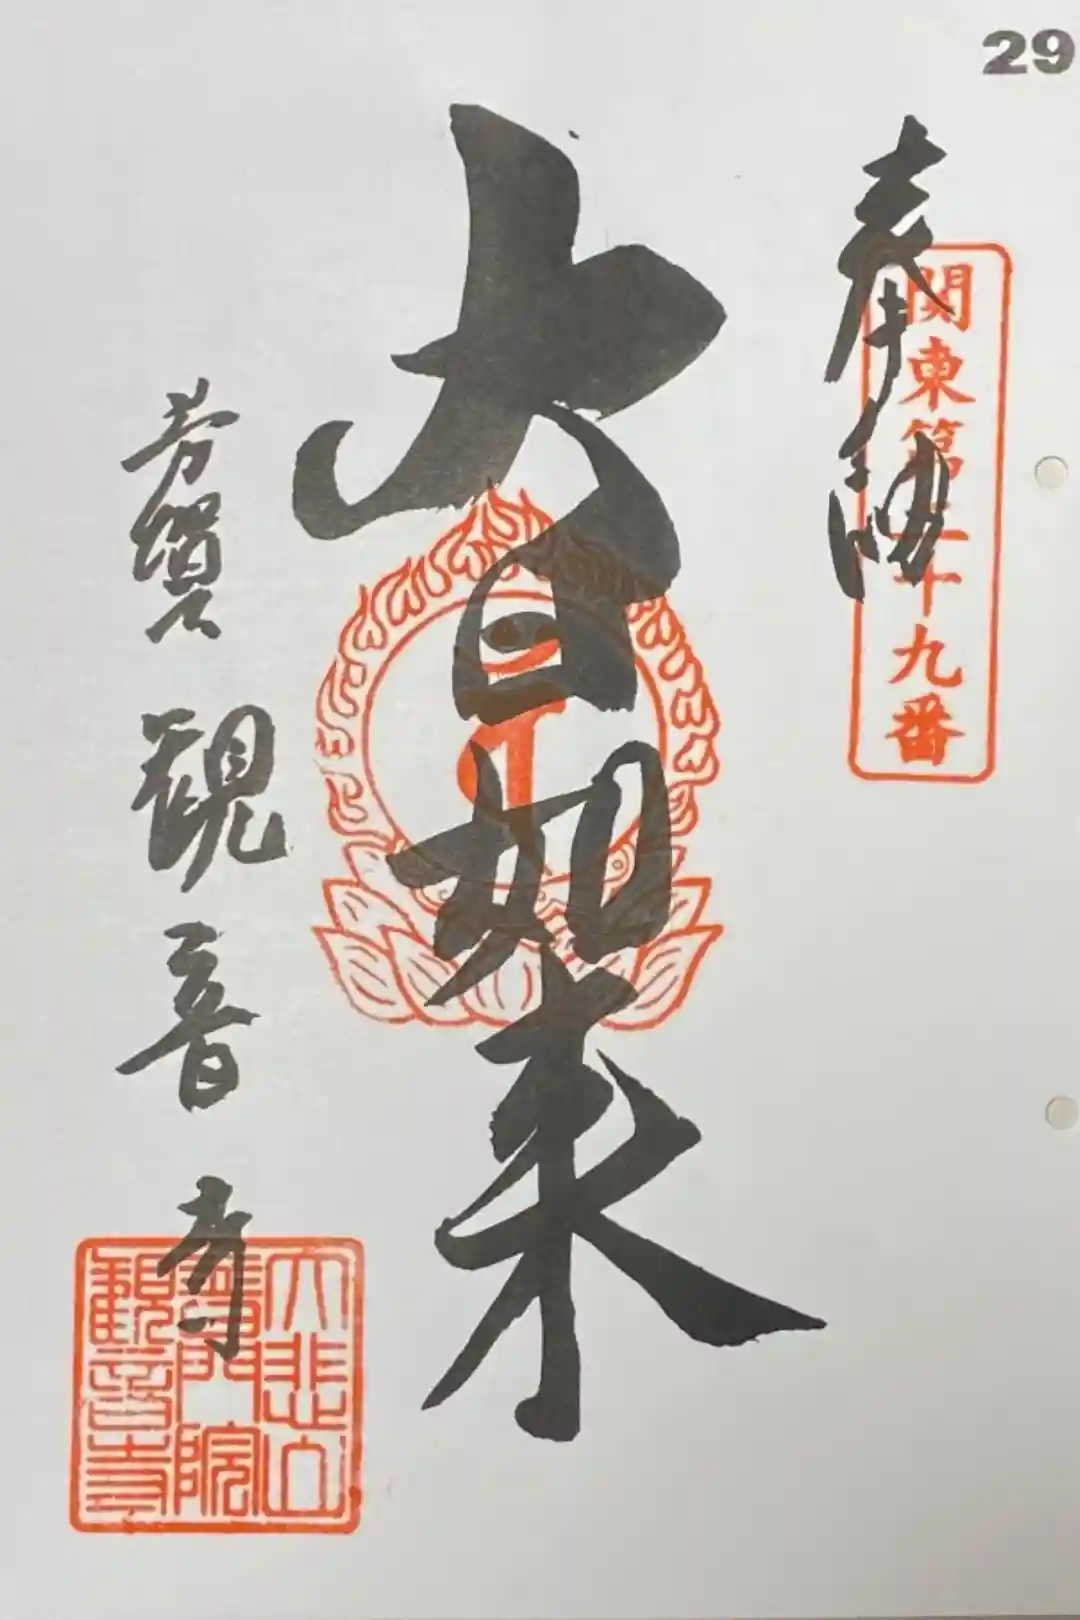 29
奉拝
関東第二十九番
大日如来
芳賀観音寺
大悲山
普門院
観音寺